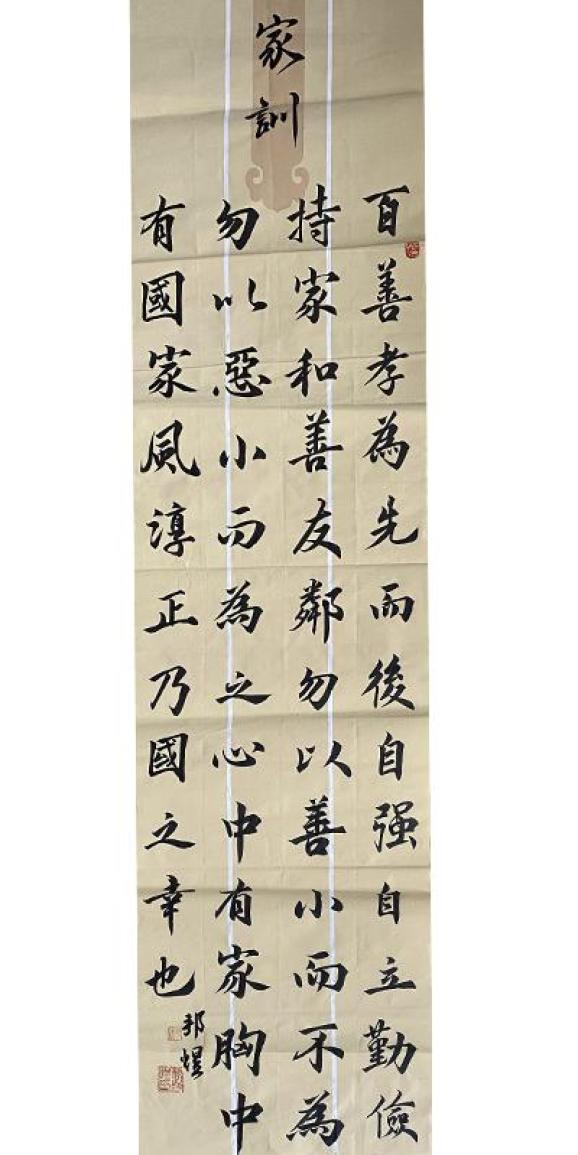 家訓
百善孝為先而後自强自立勤儉
持家和善友鄰勿以善小而不為
勿以惡小而為之心中有家胸中
有國家風淳正乃國之幸也
邦煜